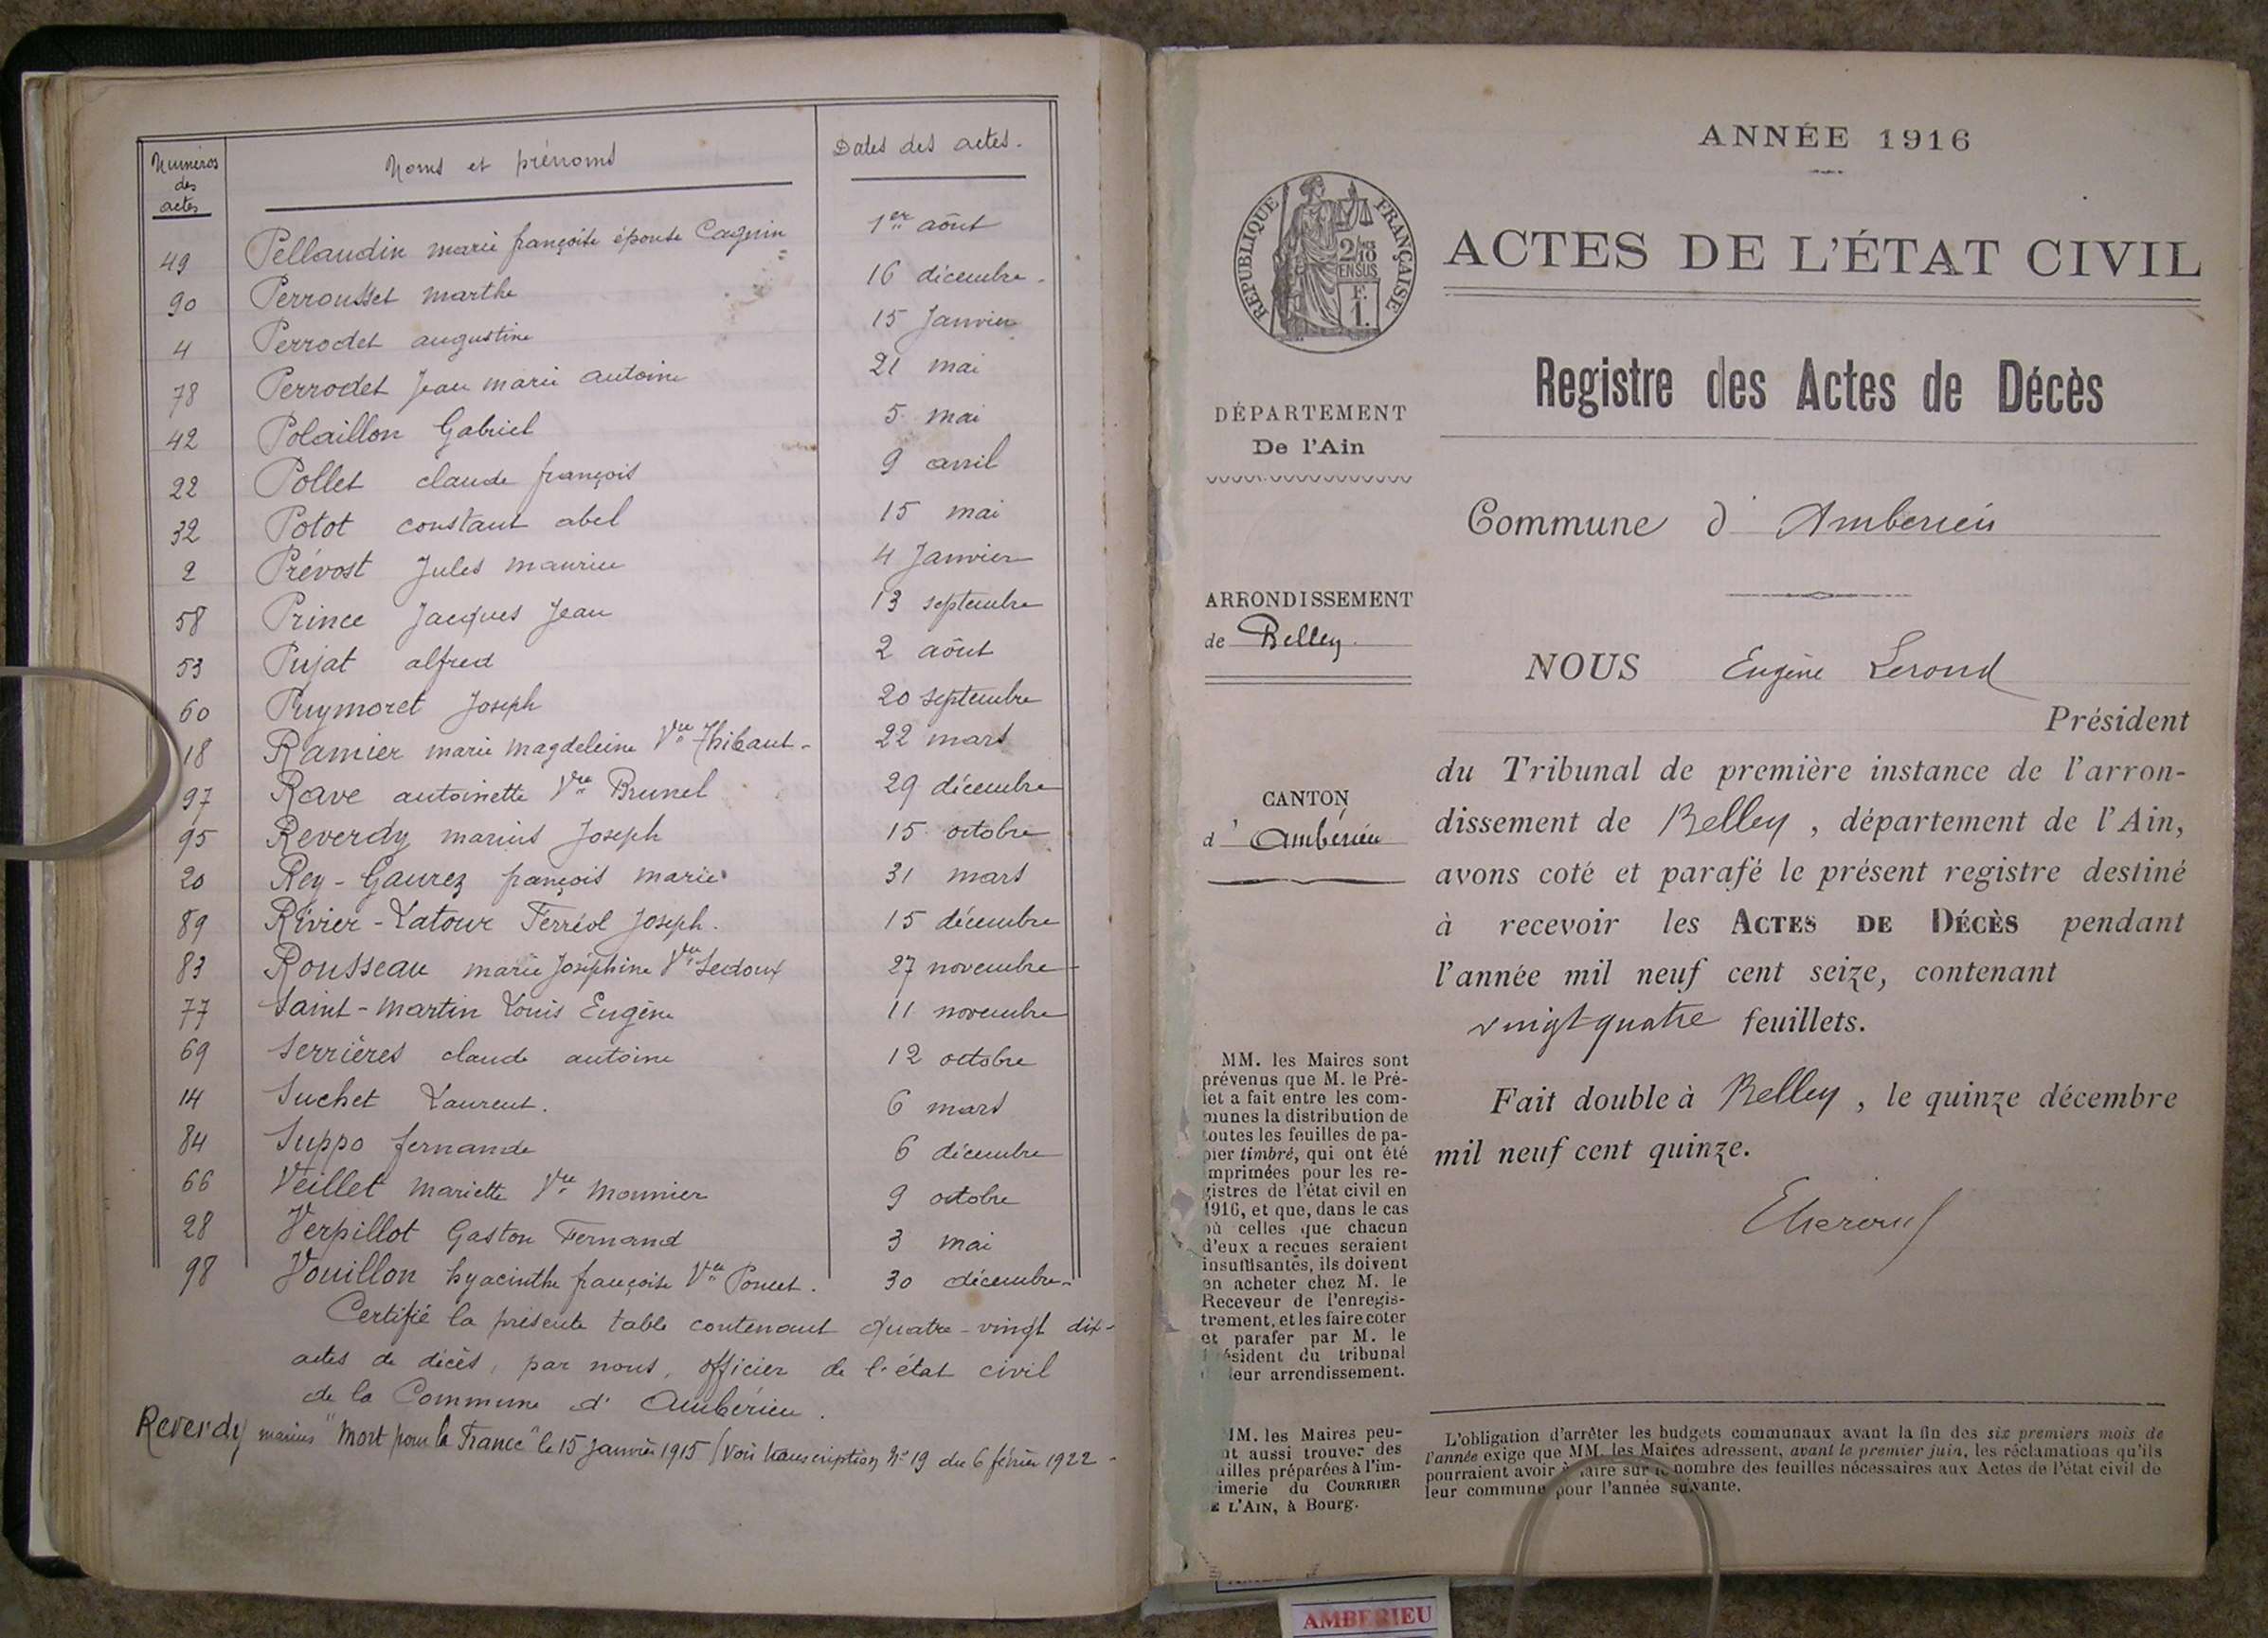 Numéros des actes
Noms et prénoms
Dates des actes.
49 Pellaudin marie françoise épouse Cagnin 1er aôut
90 Perrousset marthe 16 décembre
4 Perrodet augustine 15 Janvier
78 Perrodet Jean marie antoine 21 mai
42 Polaillon Gabriel 5 mai
22 Pollet claude françois 9 avril
32 Potot constant abel 15 mai
2 Prévost Jules maurice 4 Janvier
58 Prince Jacques Jean 13 septembre
53 Pujat alfred 2 aôut
60 Puymoret Joseph 20 septembre
18 Ramier marie magdeleine Vve Thibaut 22 mars
97 Rave antoinette Vve Brunel 29 décembre
95 Reverdy marius Joseph 15 octobre
20 Rey-Gaurez françois marie 31 mars
89 Rivier-Latour Ferréol Joseph. 15 décembre
83 Rousseau marie Joséphine Vve Ledoux 27 novembre
77 Saint-martin Louis Eugène 11 novembre
69 Serrières claude antoine 12 octobre
14 Suchet Laurent. 6 mars
84 Suppo fernande 6 décembre
66 Veillet mariette Vve monnier 9 octobre
28 Verpillot Gaston Fernand 3 mai
98 Vouillon hyacinthe françoise Vve Poncet. 30 décembre
Certifié la présente table contenant quatre-vingt dix-
actes de décès, par nous, officier de l'état civil
de la Commune d'Ambérieu.
Reverdy marius "Mort pour la France" le 15 Janvier 1915 (Voir transcription N° 19 du 6 février 1922
ANNÉE 1916
RÉPUBLIQUE FRANÇAISE
2/10 EN SUS
F. 1.
ACTES DE L'ÉTAT CIVIL
Registre des Actes de Décès
DÉPARTEMENT
De l'Ain
Commune d'Ambérieu
ARRONDISSEMENT
de Belley.
NOUS Eugène Lerond
Président
du Tribunal de première instance de l'arron-
dissement de Belley, département de l'Ain,
avons coté et parafé le présent registre destiné
à recevoir les ACTES DE DÉCÈS pendant
l'année mil neuf cent seize, contenant
vingt quatre feuillets.
Fait double à Belley, le quinze décembre
mil neuf cent quinze.
CANTON
d'Ambérieu
MM. les Maires sont
prévenus que M. le Pré-
fet a fait entre les com-
munes la distribution de
toutes les feuilles de pa-
pier timbré, qui ont été
imprimées pour les re-
gistres de l'état civil en
1916, et que, dans le cas
où celles que chacun
d'eux a reçues seraient
insuffisantes, ils doivent
en acheter chez M. le
Receveur de l'enregis-
trement, et les faire coter
et parafer par M. le
Président du tribunal
leur arrondissement.
MM. les Maires peu-
nt aussi trouver des
uilles préparées à l'im-
imerie du COURRIER
E L'AIN, à Bourg.
L'obligation d'arrêter les budgets communaux avant la fin des six premiers mois de
l'année exige que MM. les Maires adressent, avant le premier juin, les réclamations qu'ils
pourraient avoir à faire sur le nombre des feuilles nécessaires aux Actes de l'état civil de
leur commune pour l'année suivante.
AMBERIEU